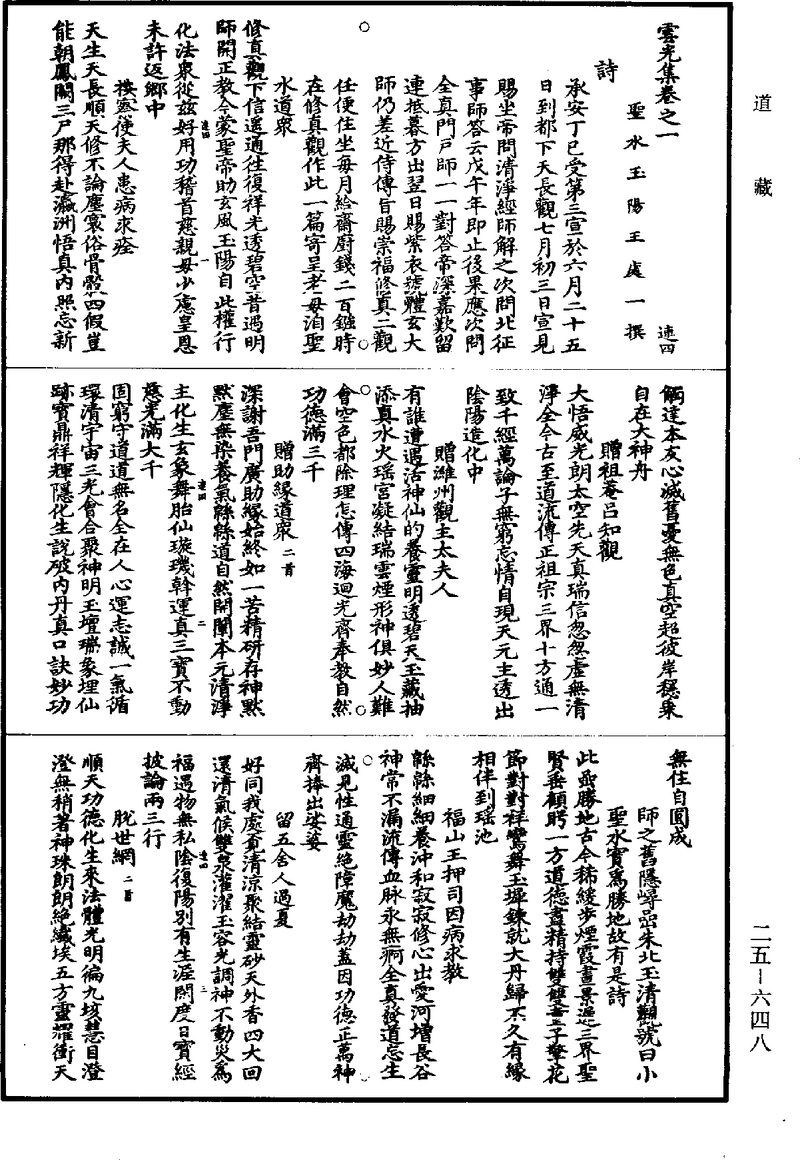 道藏
雲光集卷之一
述四
聖水玉陽王處一撰
詩
承安丁巳受第三宣於六月二十五
日到都下天長觀七月初三日宣見
賜坐帝問清淨經師解之次問北征
事師答云戊午年即止後果應次問
全真門戶師一一對答帝深嘉歎留
連抵暮方出翌日賜紫衣號體玄大
師仍差近侍傳旨賜崇福修真二觀
任便住坐每月給齋廚錢二百鏹時
在修真觀作此一篇寄呈老母洎聖
水道衆
修真觀下信遥通往復祥光透碧空昔遇明
師開正教今蒙聖帝助玄風玉陽自此權行
化法衆從茲好用功稽首慈親毋少慮皇恩
未許返鄉中
述四
一
按察使夫人患病求痊
天生天長順天修不論塵寰俗骨骰四假豈
能朝鳳闕三尸那得赴瀛洲悟真内照忘新
觸達本友心滅舊憂無色真空超彼岸穩乘
自在大神舟
贈祖菴呂知觀
大悟威光朗太空先天真瑞信忽忽虛無清
淨全今古至道流傳正祖宗三界十方通一
致千經萬論子無窮忘情自現天元主透出
陰陽造化中
贈濰州觀主太夫人
有誰遭遇活神仙的養靈明透碧天玉藏抽
添真水火瑶宮凝結瑞雲煙形神俱妙人難
會空色都除理怎傳四海迴光齊奉教自然
功德滿三千
贈助緣道衆二首
深謝吾門廣助緣始終如一苦精研存神默
默塵無染養氣綿綿道自然開闡本元清淨
主化生玄象舞胎仙璇璣斡運真三寶不動
慈光滿大千
述四
二
固窮守道道無名全在人心運志誠一氣循
環清宇宙三光會合聚神明玉壇瑞象埋仙
跡寳鼎祥輝隱化生說破内丹真口訣妙功
無住自圓成
師之舊隱嶀𡶶朱北玉清觀號曰小
聖水實為勝地故有是詩
此𡶶勝地古今稀緩步煙霞晝景遲三界聖
賢垂顧盻一方道德盡精持雙雙童子擎花
節對對祥鸞舞玉墀鍊就大丹歸不久有緣
相伴到瑶池
福山王押司因病求教
綿綿細細養沖和寂寂修心出愛河增長谷
神常不漏流傳血脉永無痾全真發道忘生
滅見性通靈絶障魔劫劫蓋因功德正萬神
齊捧出娑婆
留五舍人過夏
好同我處度清涼聚結靈砂天外香四大回
還清氣候雙泉灌濯玉容光調神不動災為
福遇物無私陰復陽别有生涯開度日寳經
披論兩三行
述四
三
脫世網二首
順天功德化生來法體光明徧九垓慧目澄
澄無稍著神珠朗朗絶纖埃五方靈耀衝天
二五—六四八